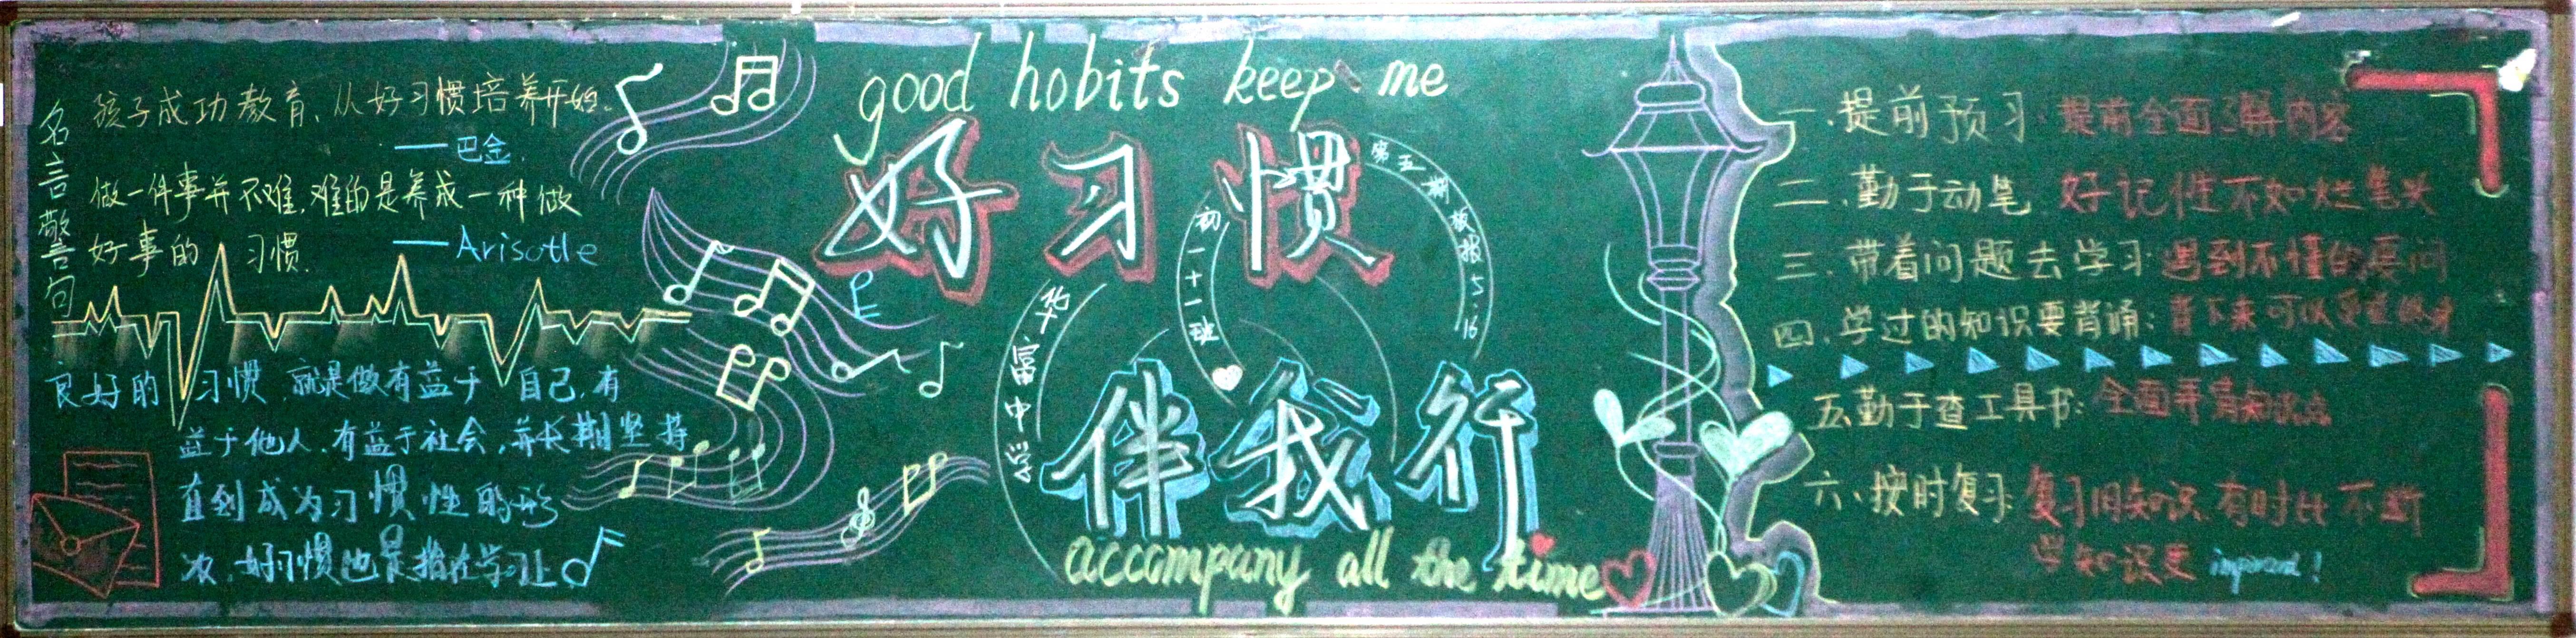 名言警句
孩子成功教育、从好习惯培养开始。
——巴金
做一件事并不难,难的是养成一种做
好事的 习惯.
——Arisotle
良好的习惯,就是做有益于自己,有
益于他人,有益于社会,并长期坚持
直到成为习惯性的形
次,好习惯也是指在学习上
good hobits keep me
好习惯
伴我行
accompany all the time
华富中学
初一十一班
第五期板报 5 16
一.提前预习:提前全面了解内容
二.勤于动笔 好记性不如烂笔头
三.带着问题去学习:遇到不懂的要问
四.学过的知识要背诵:背下来可以
五.勤于查工具书:全面
六、按时复习:复习旧知识,有时比不断
学知识更 important!